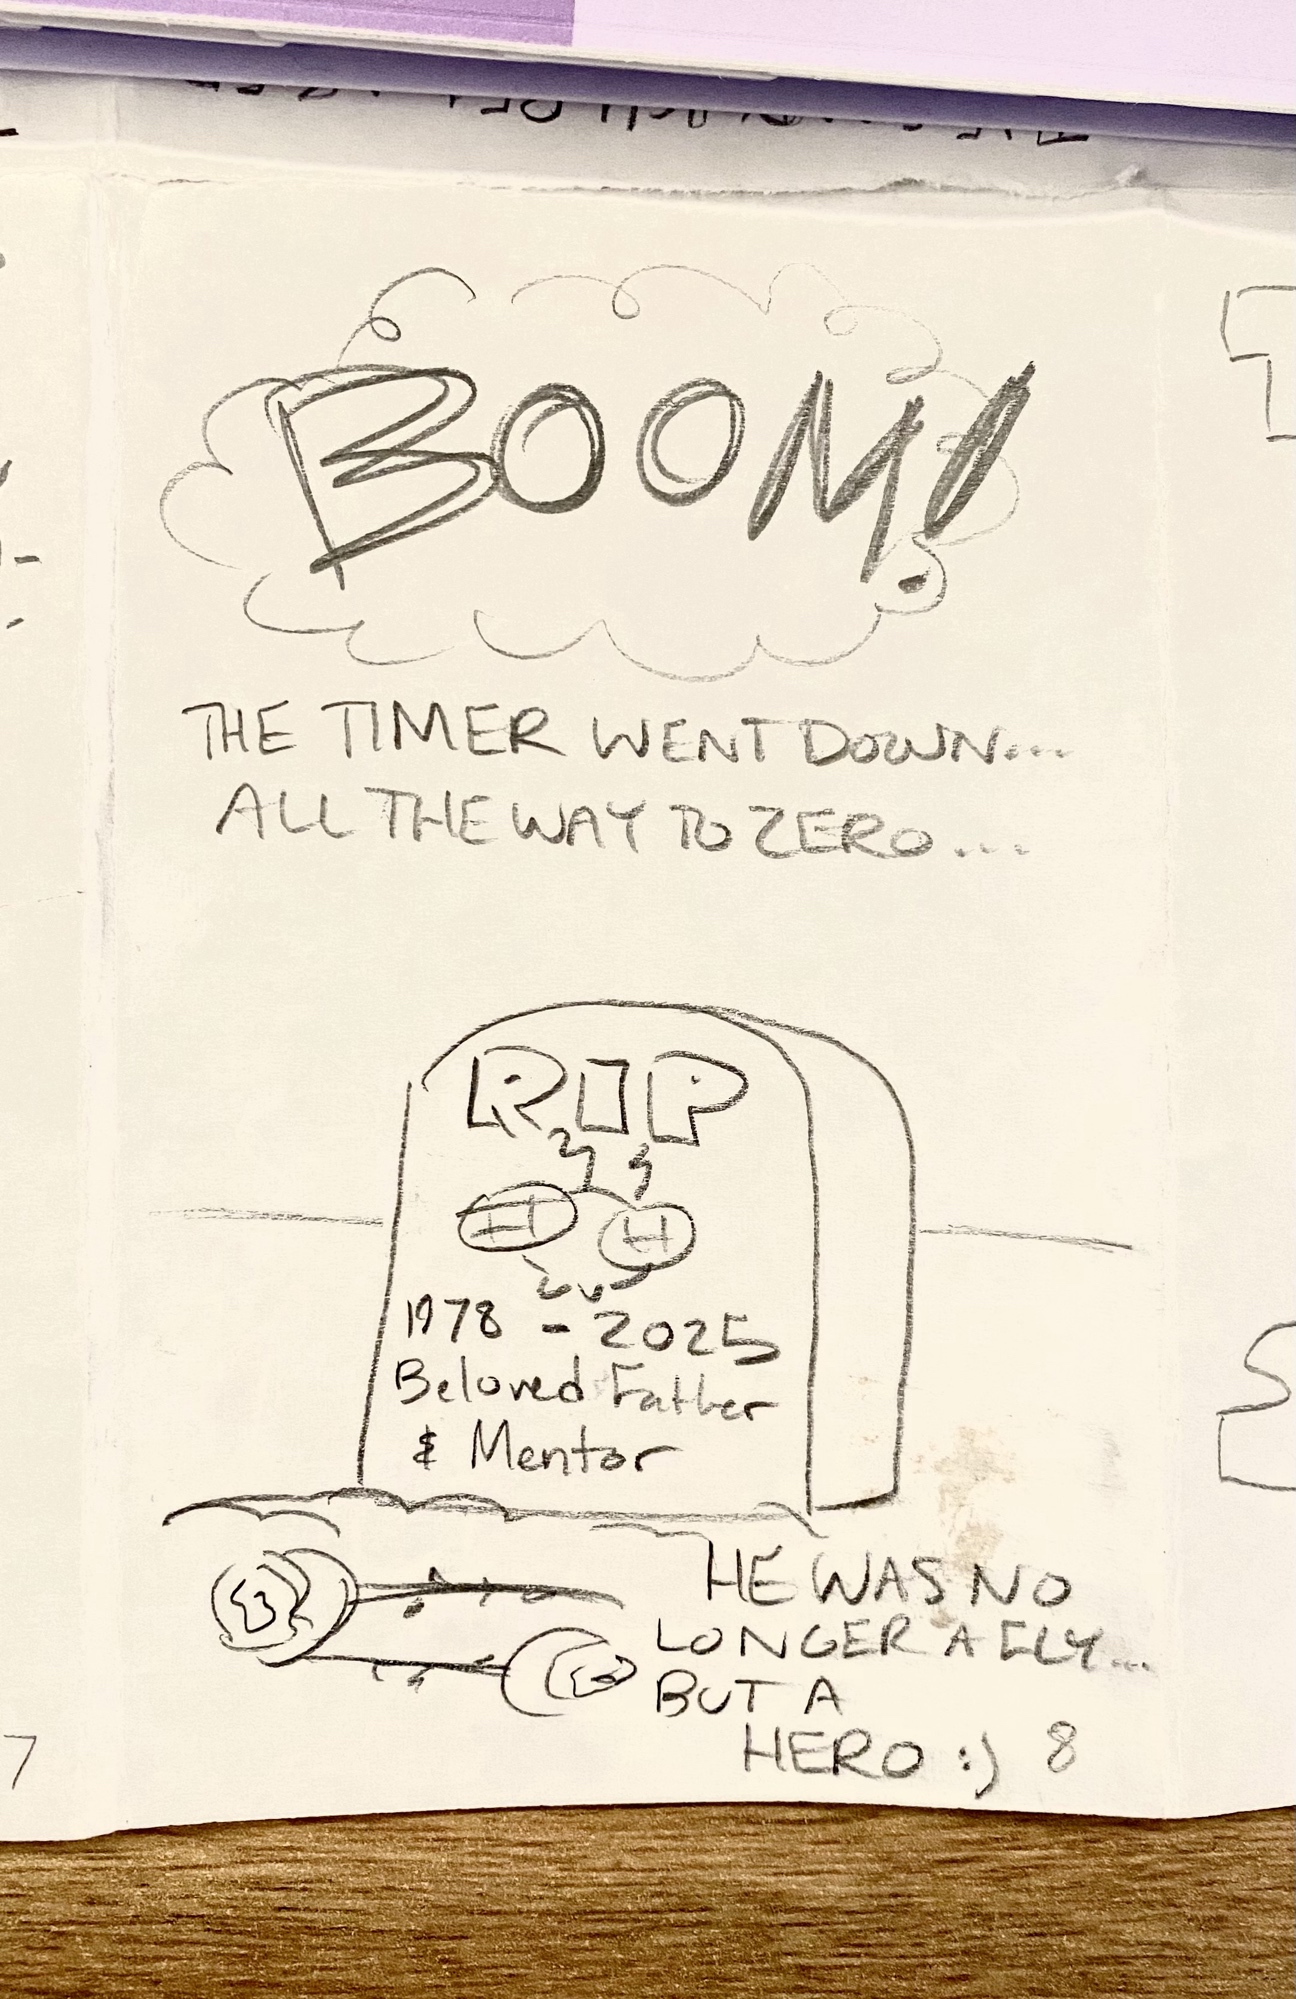 BOOM!
THE TIMER WENT DOWN...
ALL THE WAY TO ZERO...
RIP
1978 - 2025
Beloved Father
& Mentor
HE WAS NO
LONGER A FLY...
BUT A
HERO :) 8
7